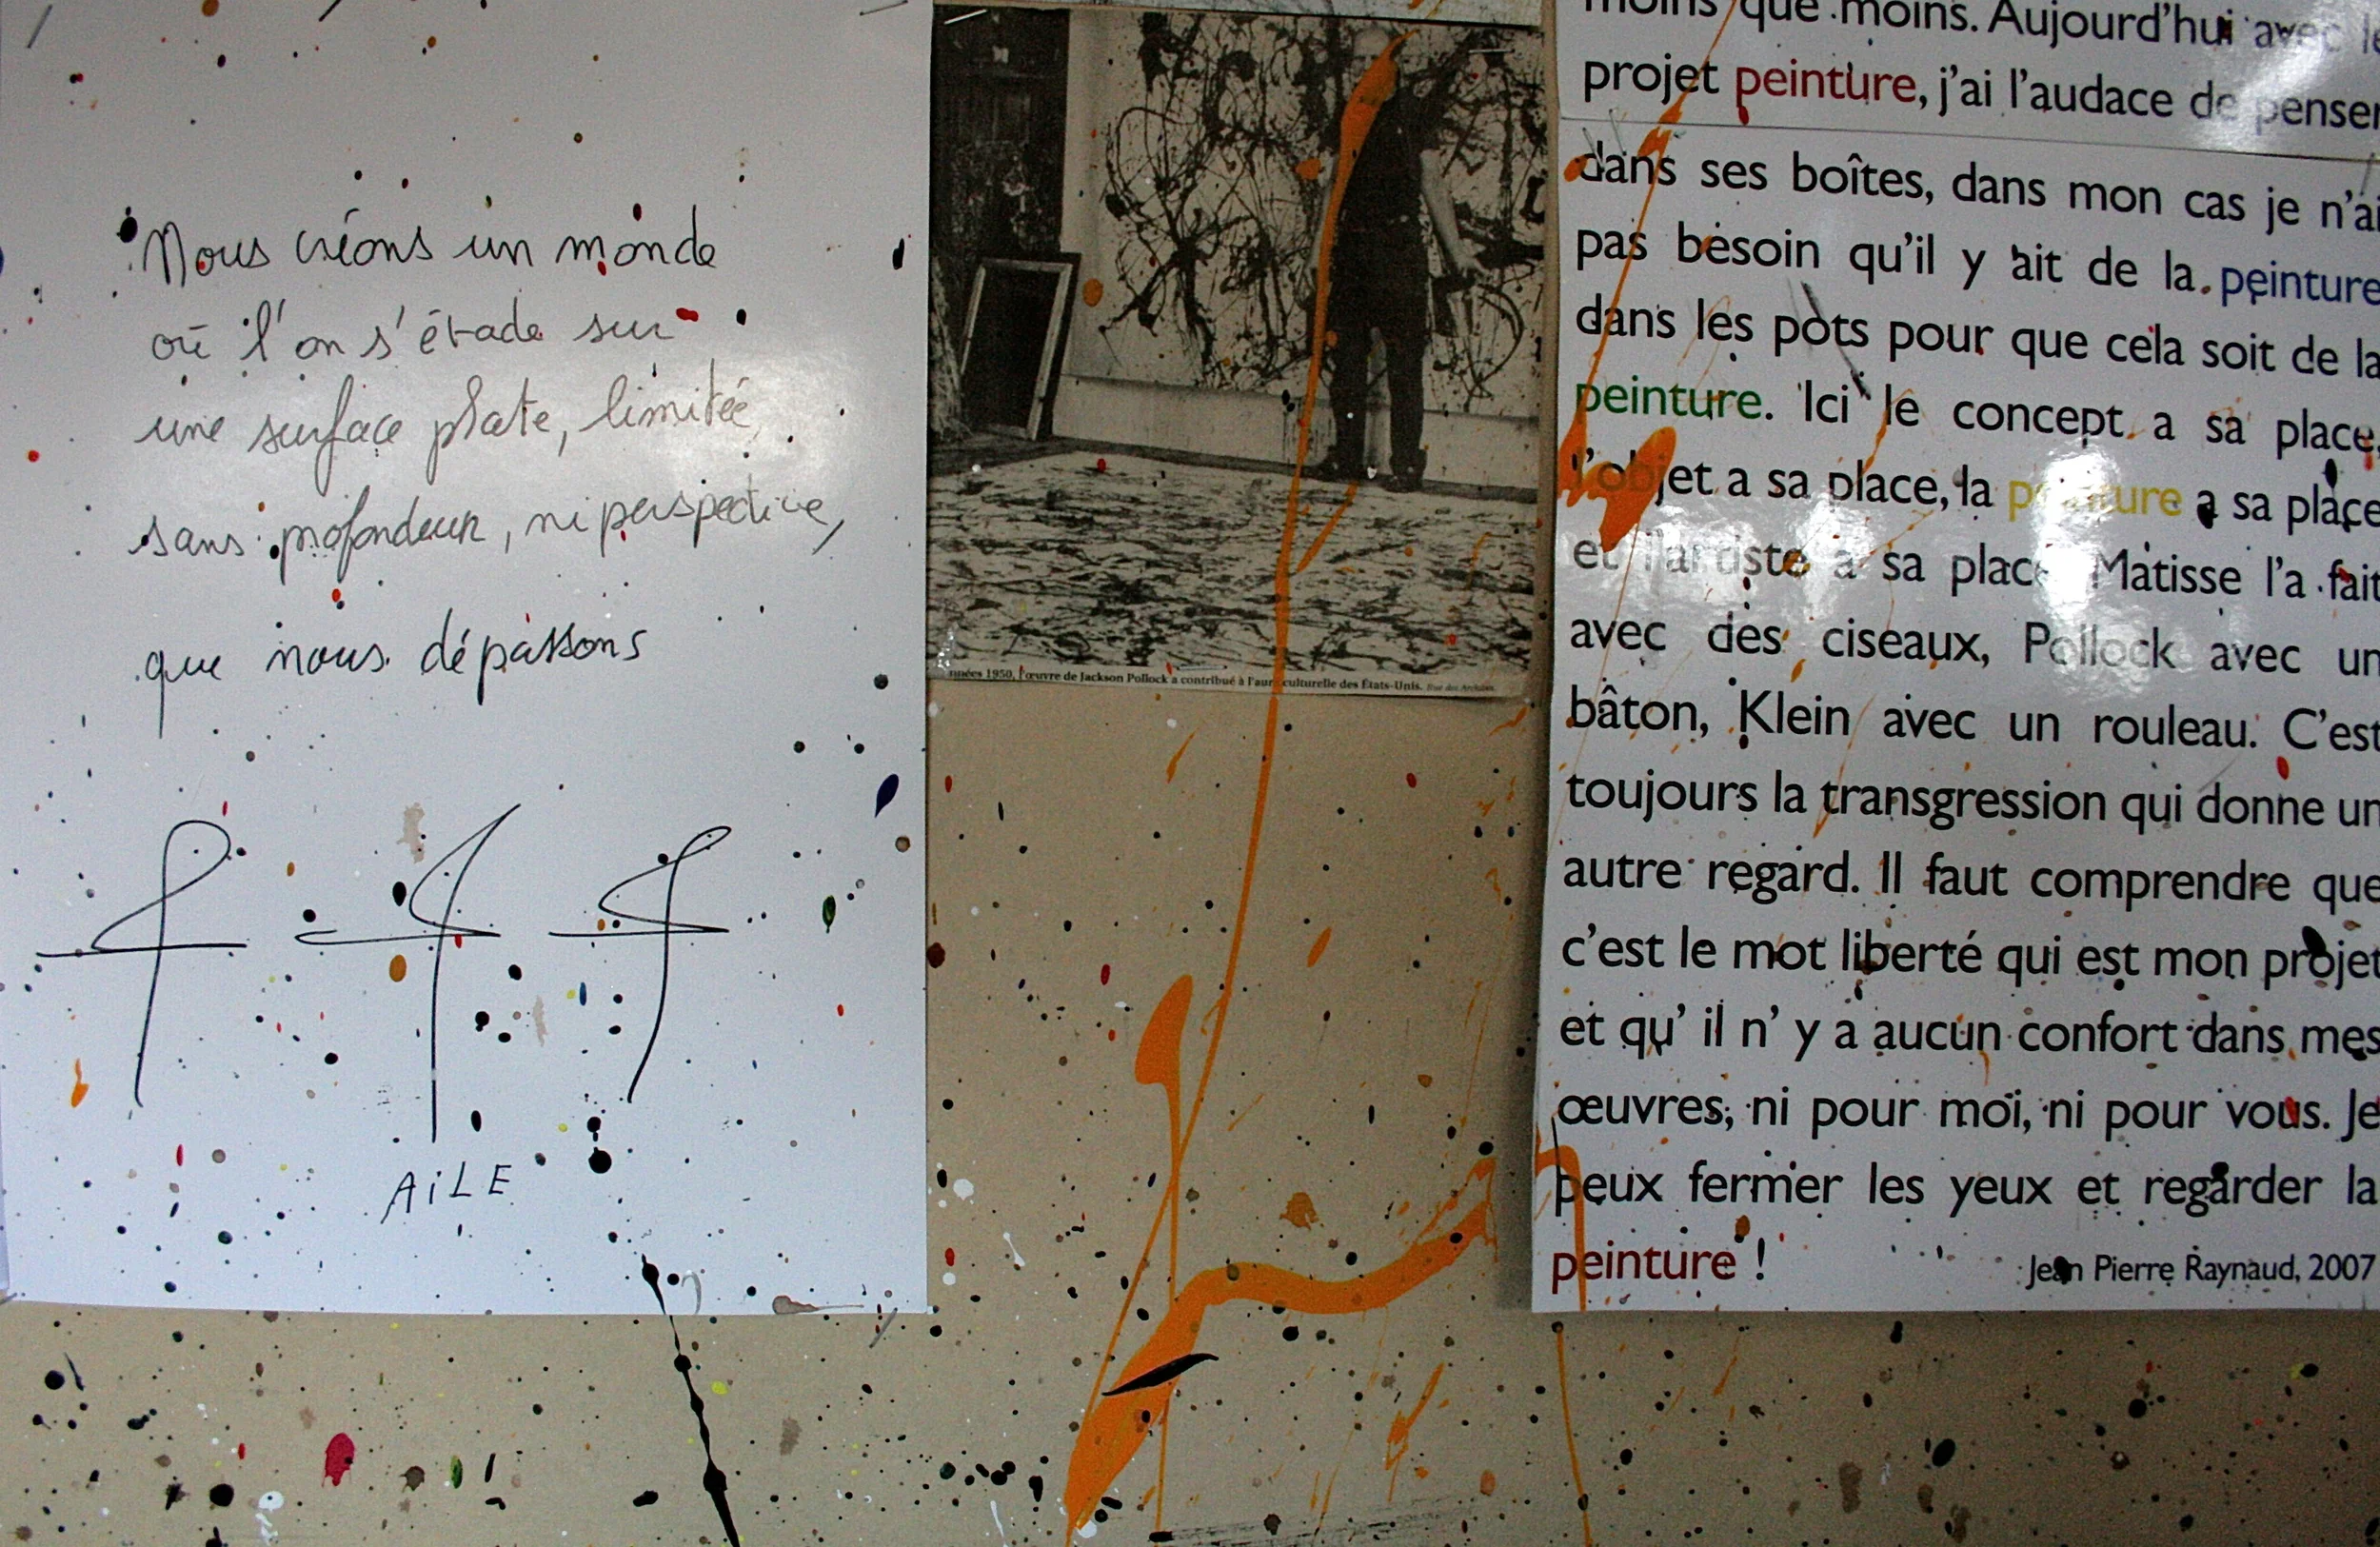 Nous créons un monde
où l'on s'évade sur
une surface plate, limitée,
sans profondeur, ni perspective,
que nous dépassons
AiLE
nnées 1950, l'œuvre de Jackson Pollock a contribué à l'aura culturelle des États-Unis. Rue des Archives.
moins que moins. Aujourd'hui avec le
projet peinture, j'ai l'audace de penser
dans ses boîtes, dans mon cas je n'ai
pas besoin qu'il y ait de la peinture
dans les pots pour que cela soit de la
peinture. Ici le concept a sa place,
l'objet a sa place, la peinture a sa place
et l'artiste a sa place. Matisse l'a fait
avec des ciseaux, Pollock avec un
bâton, Klein avec un rouleau. C'est
toujours la transgression qui donne un
autre regard. Il faut comprendre que
c'est le mot liberté qui est mon projet
et qu' il n' y a aucun confort dans mes
œuvres, ni pour moi, ni pour vous. Je
peux fermer les yeux et regarder la
peinture !
Jean Pierre Raynaud, 2007